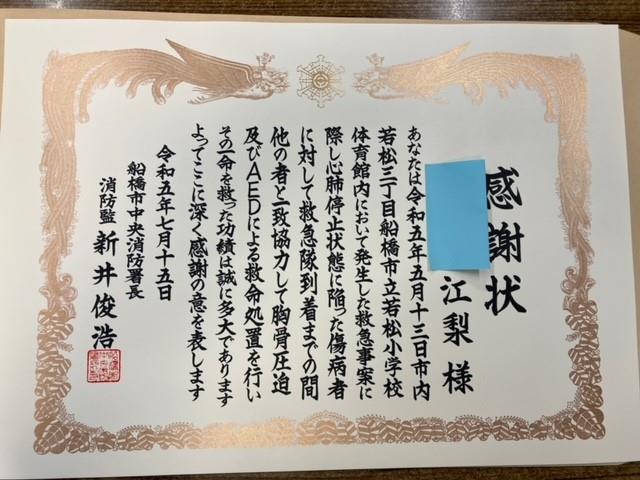 感謝状
江梨 様
あなたは令和五年五月十三日市内
若松三丁目船橋市立若松小学校
体育館内において発生した救急事案に
際し心肺停止状態に陥った傷病者
に対して救急隊到着までの間
他の者と一致協力して胸骨圧迫
及びAEDによる救命処置を行い
その一命を救った功績は誠に多大であります
よってここに深く感謝の意を表します
令和五年七月十五日
船橋市中央消防署長
消防監 新井俊浩